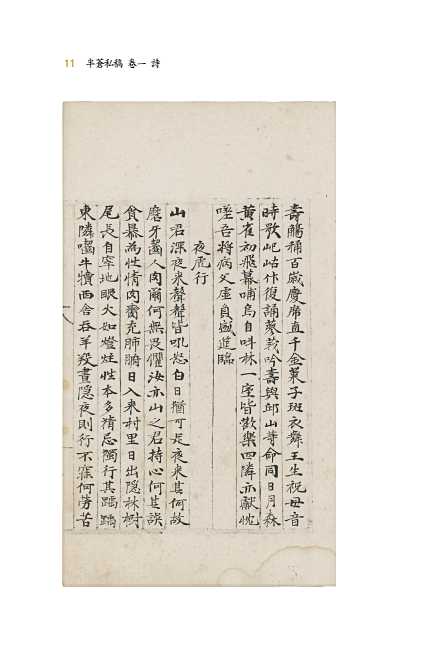 11 半蒼私稿 卷一 詩
壽觴稱百歲慶席直千金萊子斑衣舞王生祝母音
時歌屺岵什復誦蓼莪吟壽與邱山等命同日月森
黃雀初飛幕哺烏自呌林一座皆歡樂四隣亦獻忱
嗟吾將病父虛負幽進臨
夜虎行
山君深夜來聲聲皆吼怒白日猶可是夜來甚何故
磨牙齧人肉爾何無畏懼汝亦山之君持心何甚誤
貪暴爲性情肉臠充肺腑日入來村里日出隱林樹
尾長自牢地眼大如燈炷性本多猜忌獨行其踽踽
東隣囓牛犢西舍呑羊羖晝隱夜則行不寐何勞苦